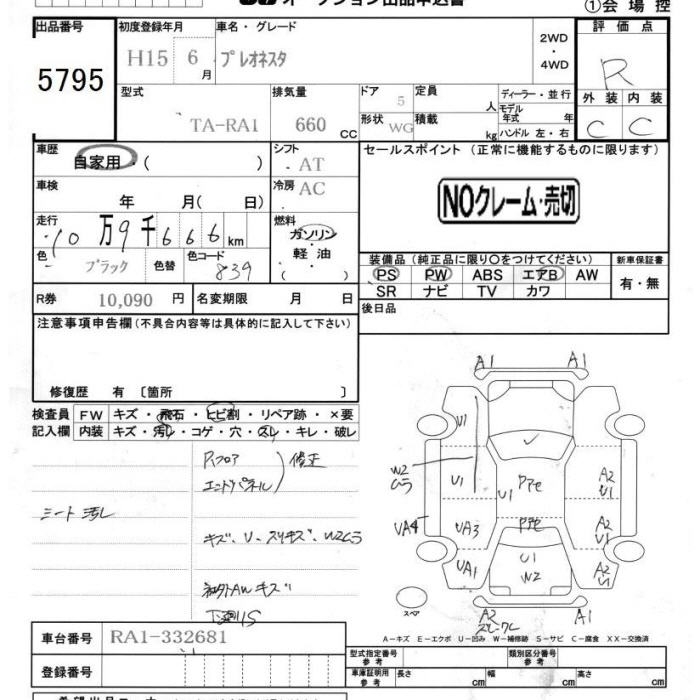 オークション出品申込書
①会場控
出品番号 初度登録年月 車名・グレード 評価点
5795 H15 6月 プレオネスタ 2WD・4WD R
型式 排気量 ドア 定員 ディーラー・並行 外装 内装
TA-RA1 660 CC 5 人 モデル年式 年 C C
形状 WG 積載 kg ハンドル 左・右
車歴 自家用・( ) シフト AT セールスポイント (正常に機能するものに限ります)
車検 年 月(日) 冷房 AC NOクレーム・売切
走行 10万9千666km 燃料 ガソリン・軽油・( )
色 ブラック 色替 色コード 839
装備品 (純正品に限り○をつけてください) 新車保証書
PS PW ABS エアB AW 有・無
SR ナビ TV カワ
R券 10,090円 名変期限 月 日 後日品
注意事項申告欄 (不具合内容等は具体的に記入して下さい)
修復歴 有 〔箇所 〕
検査員 FW キズ・飛石・ヒビ割・リペア跡・×要
記入欄 内装 キズ・汚レ・コゲ・穴・スレ・キレ・破レ
Rフロア
エンドパネル 修正
シート汚レ
キズ、U・スリキズ、W2ムラ
社外AWキズ
下廻りS
A1 A1
U1
W2
ムラ U1 U1 P7e A2
U1
UA4 UA3 P7e A2
U1
UA1 U1
W2 A2
U1
スペア A2 A1
A-キズ E-エクボ U-凹み W-補修跡 S-サビ C-腐食 XX-交換済
車台番号 RA1-332681 型式指定番号 参考 類別区分番号 参考
登録番号 車庫証明用 参考 長さ cm 幅 cm 高さ cm